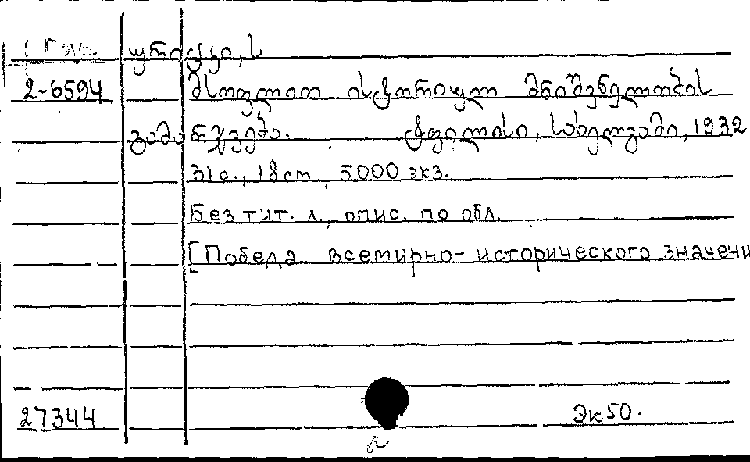 ურიცკი, ს
2-6594 მსოფლიო ისტორიულ მნიშვნელობის
გამარჯვება. ტფილისი, სახელგამი, 1932
31с., 18 cm, 5000 экз.
Без тит. л., опис. по обл.
[Победа всемирно-исторического значени
27344 Эк50.